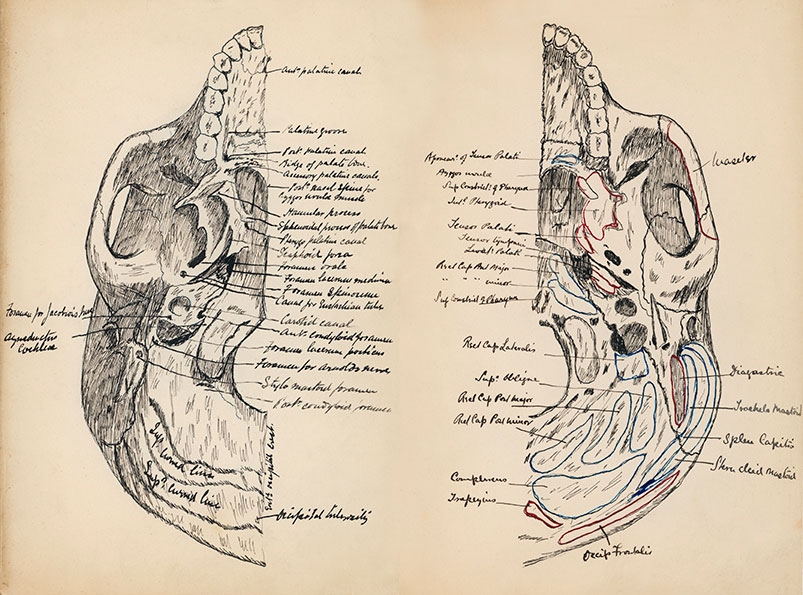 Antr palatine canal
Palatine groove
Postr Palatine canal
Ridge of palate bone.
Accessory palatine canals
Postr Nasal Spine for
azygos uvulae muscle
Hamular process
Sphenoidal process of palate bone
Pterygo palatine canal
Scaphoid fossa
Foramen ovale
Foramen lacerum medium
Foramen Spinosum
Canal for Eustachian tube
Carotid canal
Antr condyloid foramen
Foramen lacerum posticus
Foramen for Arnold's nerve
Stylo mastoid foramen
Postr condyloid foramen
Foramen for Jacobson's
Aqueductus
Cochleae
curved line
curved line
occipital crest.
Occipital
Aponeurs of Tensor Palati
Azygos uvulae
Sup Constrictr of Pharynx
Intr Pterygoid
Tensor Palati
Tensor tympani
Levatr Palati
Rect Cap Ant Major
" " " minor
Sup Constrictr of Pharynx
Rect Cap Lateralis
Supr oblique
Rect Cap Post Major
Rect Cap Post minor
Complexus
Trapezius
Masseter
Diagastric
Trachelo Mastoid
Splen Capitis
Sterno cleid Mastoid
Occip Frontalis